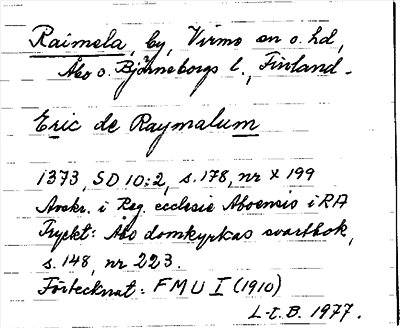 Raimela, by, Virmo sn o. hd,
Åbo o. Björneborgs l., Finland.
Eric de Raymalum
1373, SD 10:2, s. 178, nr x 199
Avskr. i Reg. ecclesie Aboensis i RA
Tryckt: Åbo domkyrkas svartbok,
s. 148, nr 223.
Förtecknat: FMU I (1910)
L-E. B. 1977.